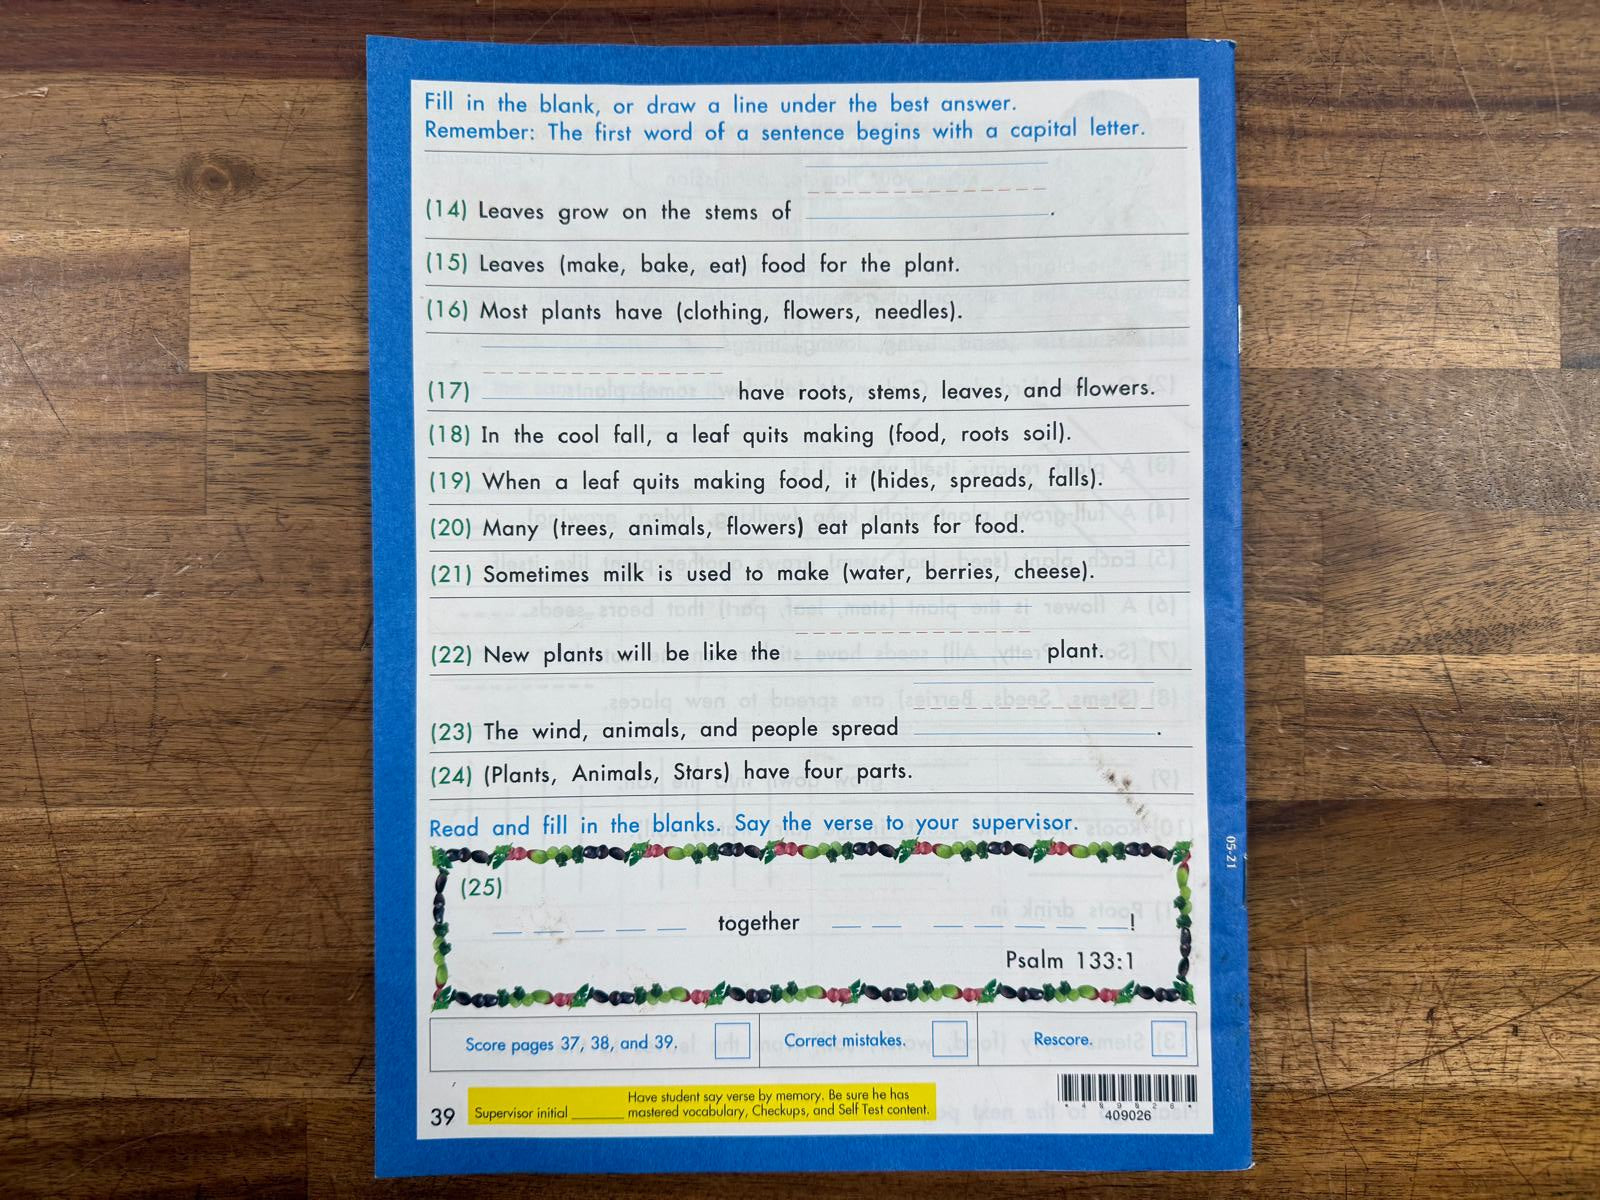 Fill in the blank, or draw a line under the best answer.
Remember: The first word of a sentence begins with a capital letter.
(14) Leaves grow on the stems of .
(15) Leaves (make, bake, eat) food for the plant.
(16) Most plants have (clothing, flowers, needles).
(17) have roots, stems, leaves, and flowers.
(18) In the cool fall, a leaf quits making (food, roots soil).
(19) When a leaf quits making food, it (hides, spreads, falls).
(20) Many (trees, animals, flowers) eat plants for food.
(21) Sometimes milk is used to make (water, berries, cheese).
(22) New plants will be like the plant.
(23) The wind, animals, and people spread .
(24) (Plants, Animals, Stars) have four parts.
Read and fill in the blanks. Say the verse to your supervisor.
(25)
_ _ _ _ _ together _ _ _ _ _ _ _!
Psalm 133:1
Score pages 37, 38, and 39.
Correct mistakes.
Rescore.
39
Supervisor initial ______
Have student say verse by memory. Be sure he has
mastered vocabulary, Checkups, and Self Test content.
409026
05-21